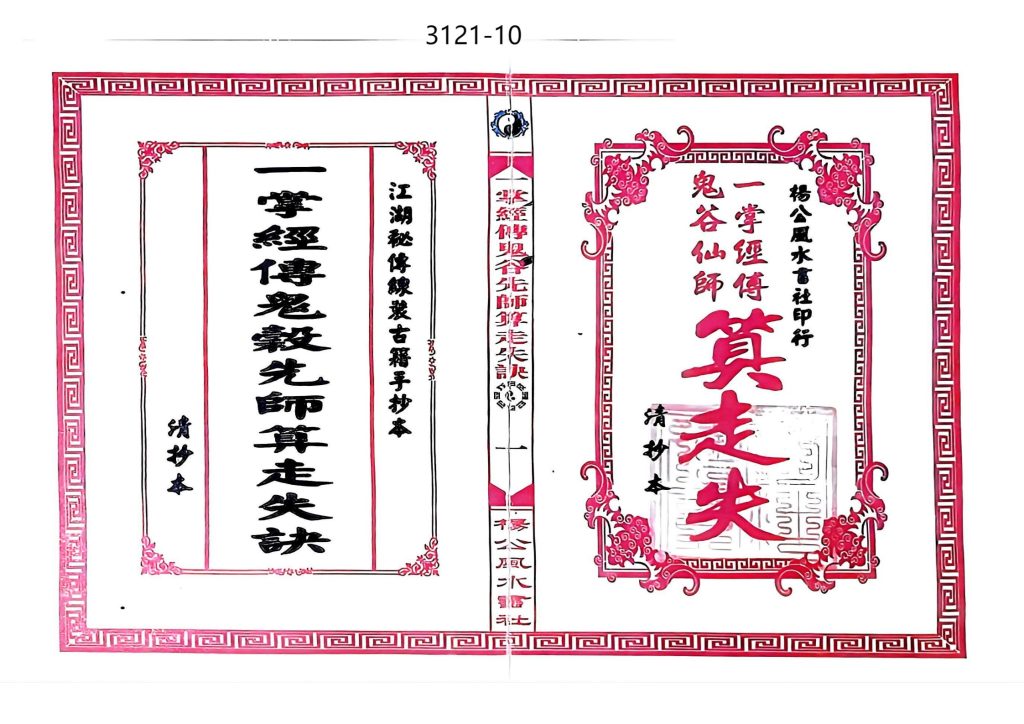 3121-10
楊公風水書社印行
一掌經傳
鬼谷仙師
算走失
清抄本
一掌經傳鬼谷先師算走失訣
一
楊公風水書社
江湖秘傳線裝古籍手抄本
一掌經傳鬼穀先師算走失訣
清抄本